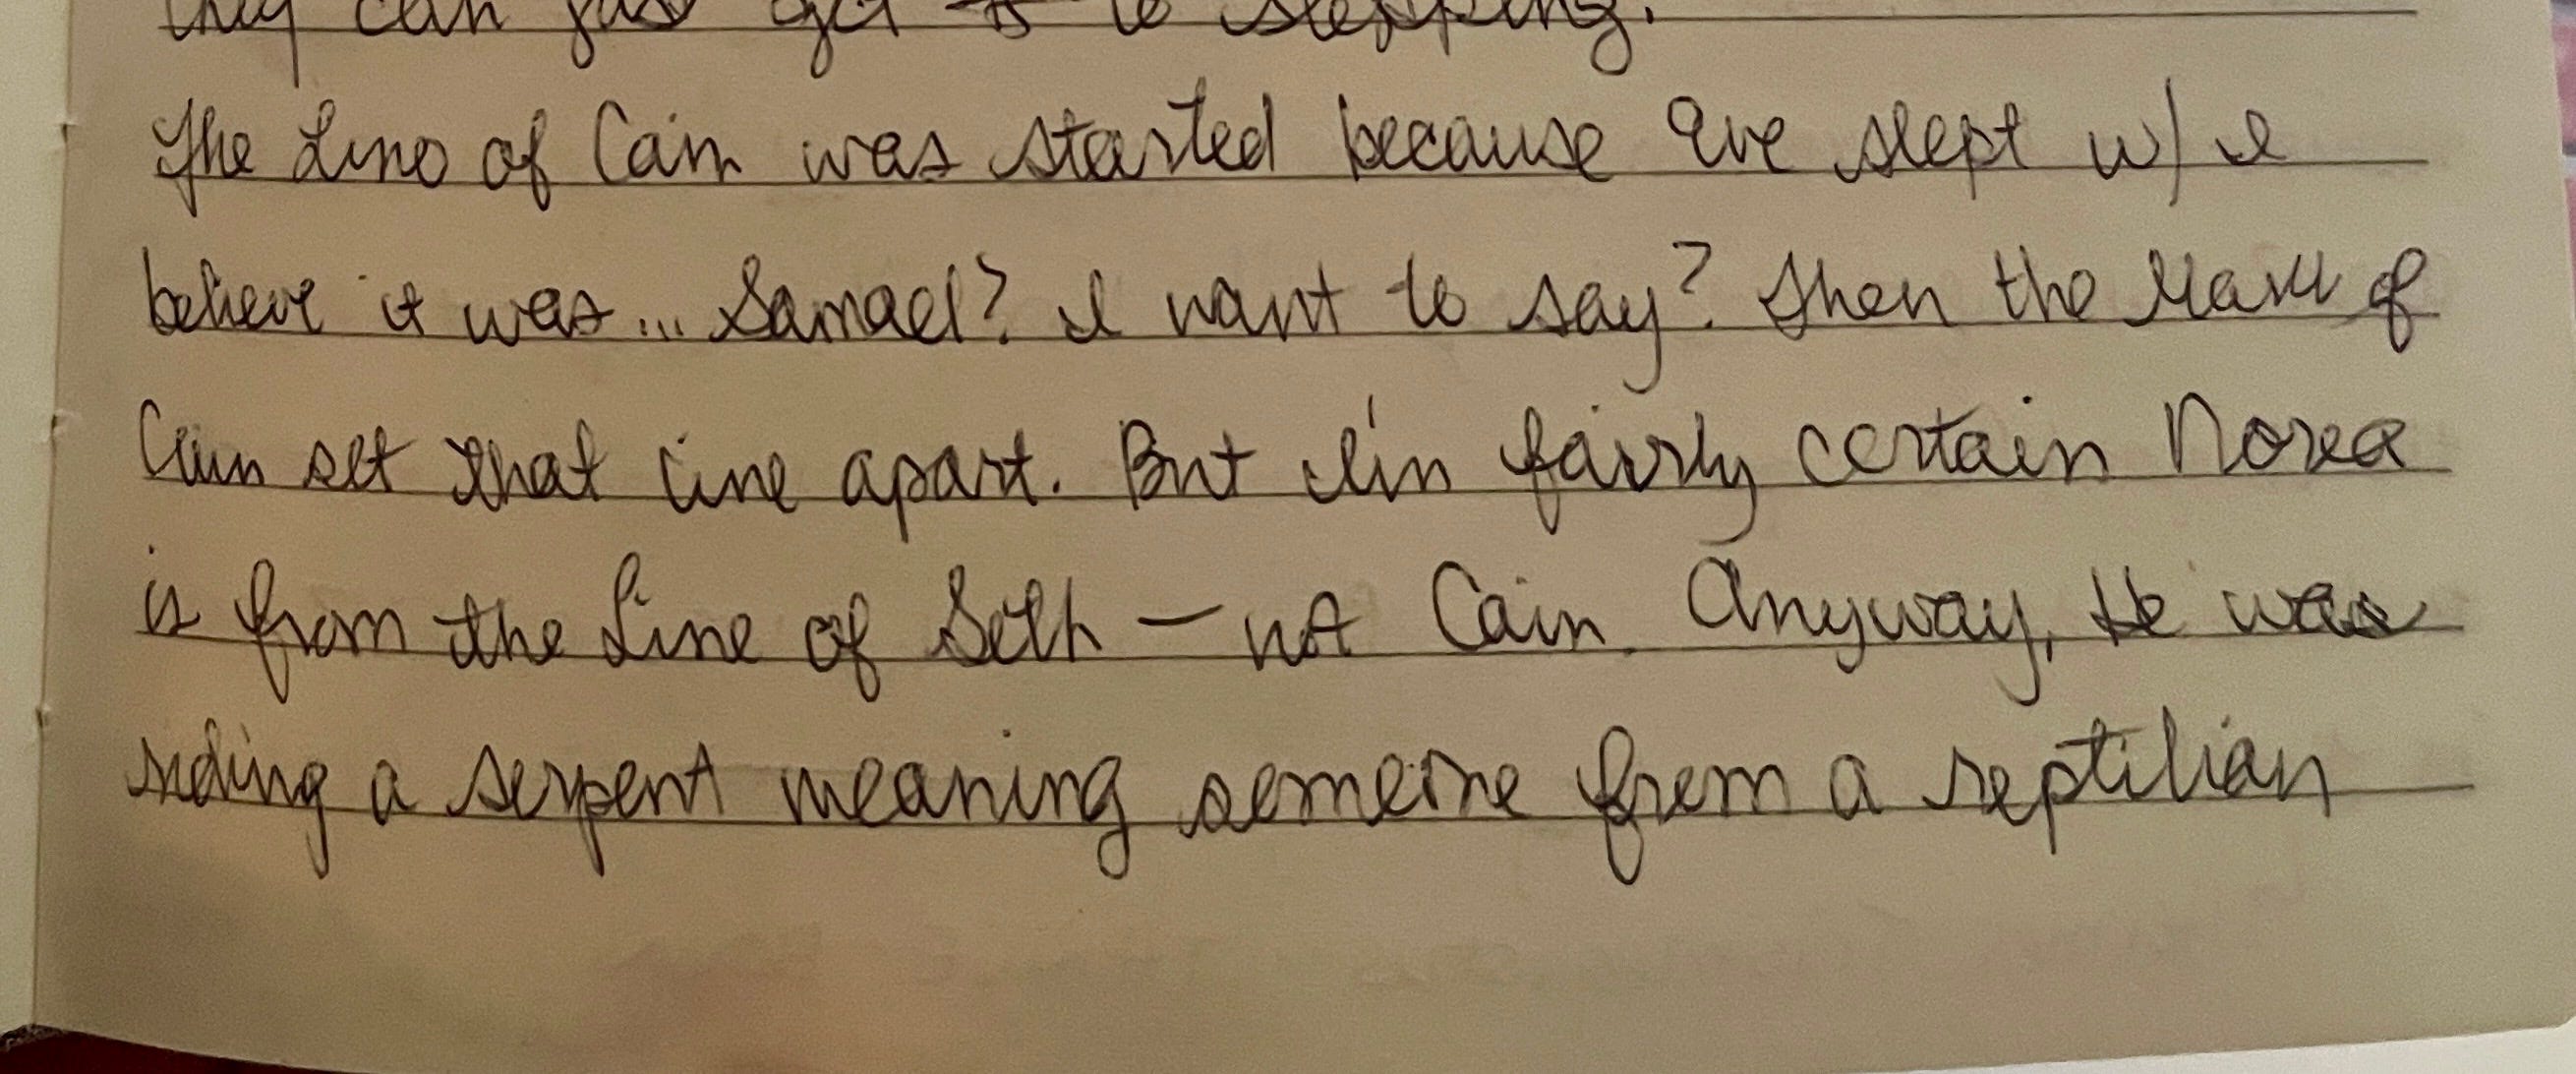 they can just get to stepping.
The Line of Cain was started because Eve slept w/ I
believe it was... Samael? I want to say? Then the Mark of
Cain set that line apart. But I'm fairly certain Norea
is from the Line of Seth — not Cain. Anyway, He was
riding a serpent meaning someone from a reptilian